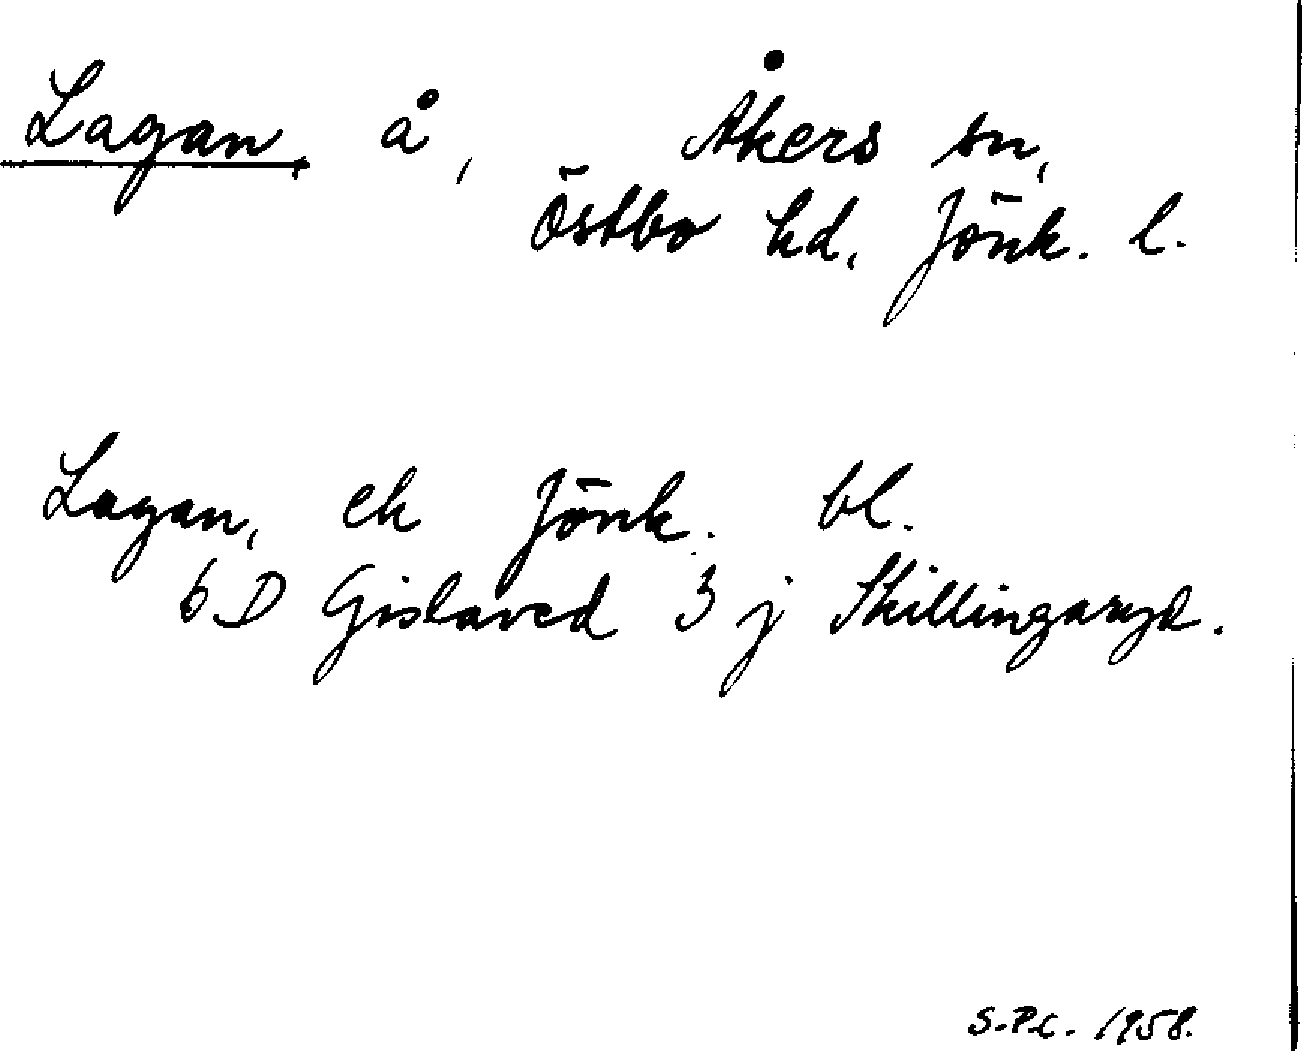 Lagan, å, Åkers sn,
Östbo hd, Jönk. l.
Lagan, ek Jönk. bl.
6 D Gislaved 3 j Skillingaryd.
S.P.C. 1958.